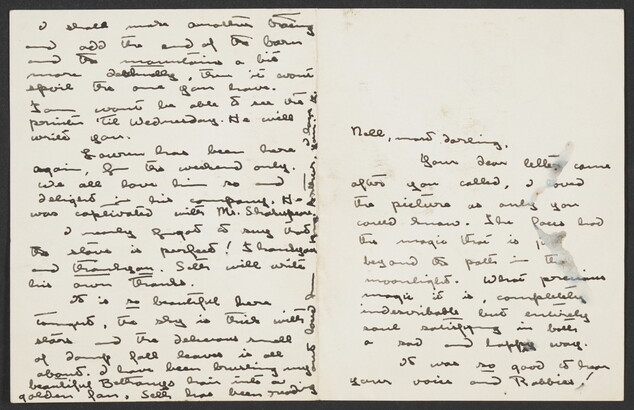 Nell, most darling,
Your dear letter came
after you called, I loved
the picture as only you
could know. The faces had
the magic that is
beyond the path in the
moonlight. What precious
magic it is, completely
indescribable but entirely
soul satisfying in both
a sad and happy way.
It was so good to hear
your voice and Robbies!
I shall make another tracing
and add the end of the barn
and the mountains a bit
more , then it wont
spoil the one you have.
Sam wont be able to see the
printer 'til Wednesday. He will
write you.
has been here
again, for the weekend only.
We all love him so and
delight in his company. He
was captivated with Mr.
I nearly forgot to say that
the stove is perfect! Thankyou
and thankyou. Seth will write
his own thanks.
It is so beautiful here
tonight, the sky is thick with
stars and the delicious smell
of damp fall leaves is all
about. I have been brushing my
beautiful Bethanys hair into a
golden fan. Seth has been reading